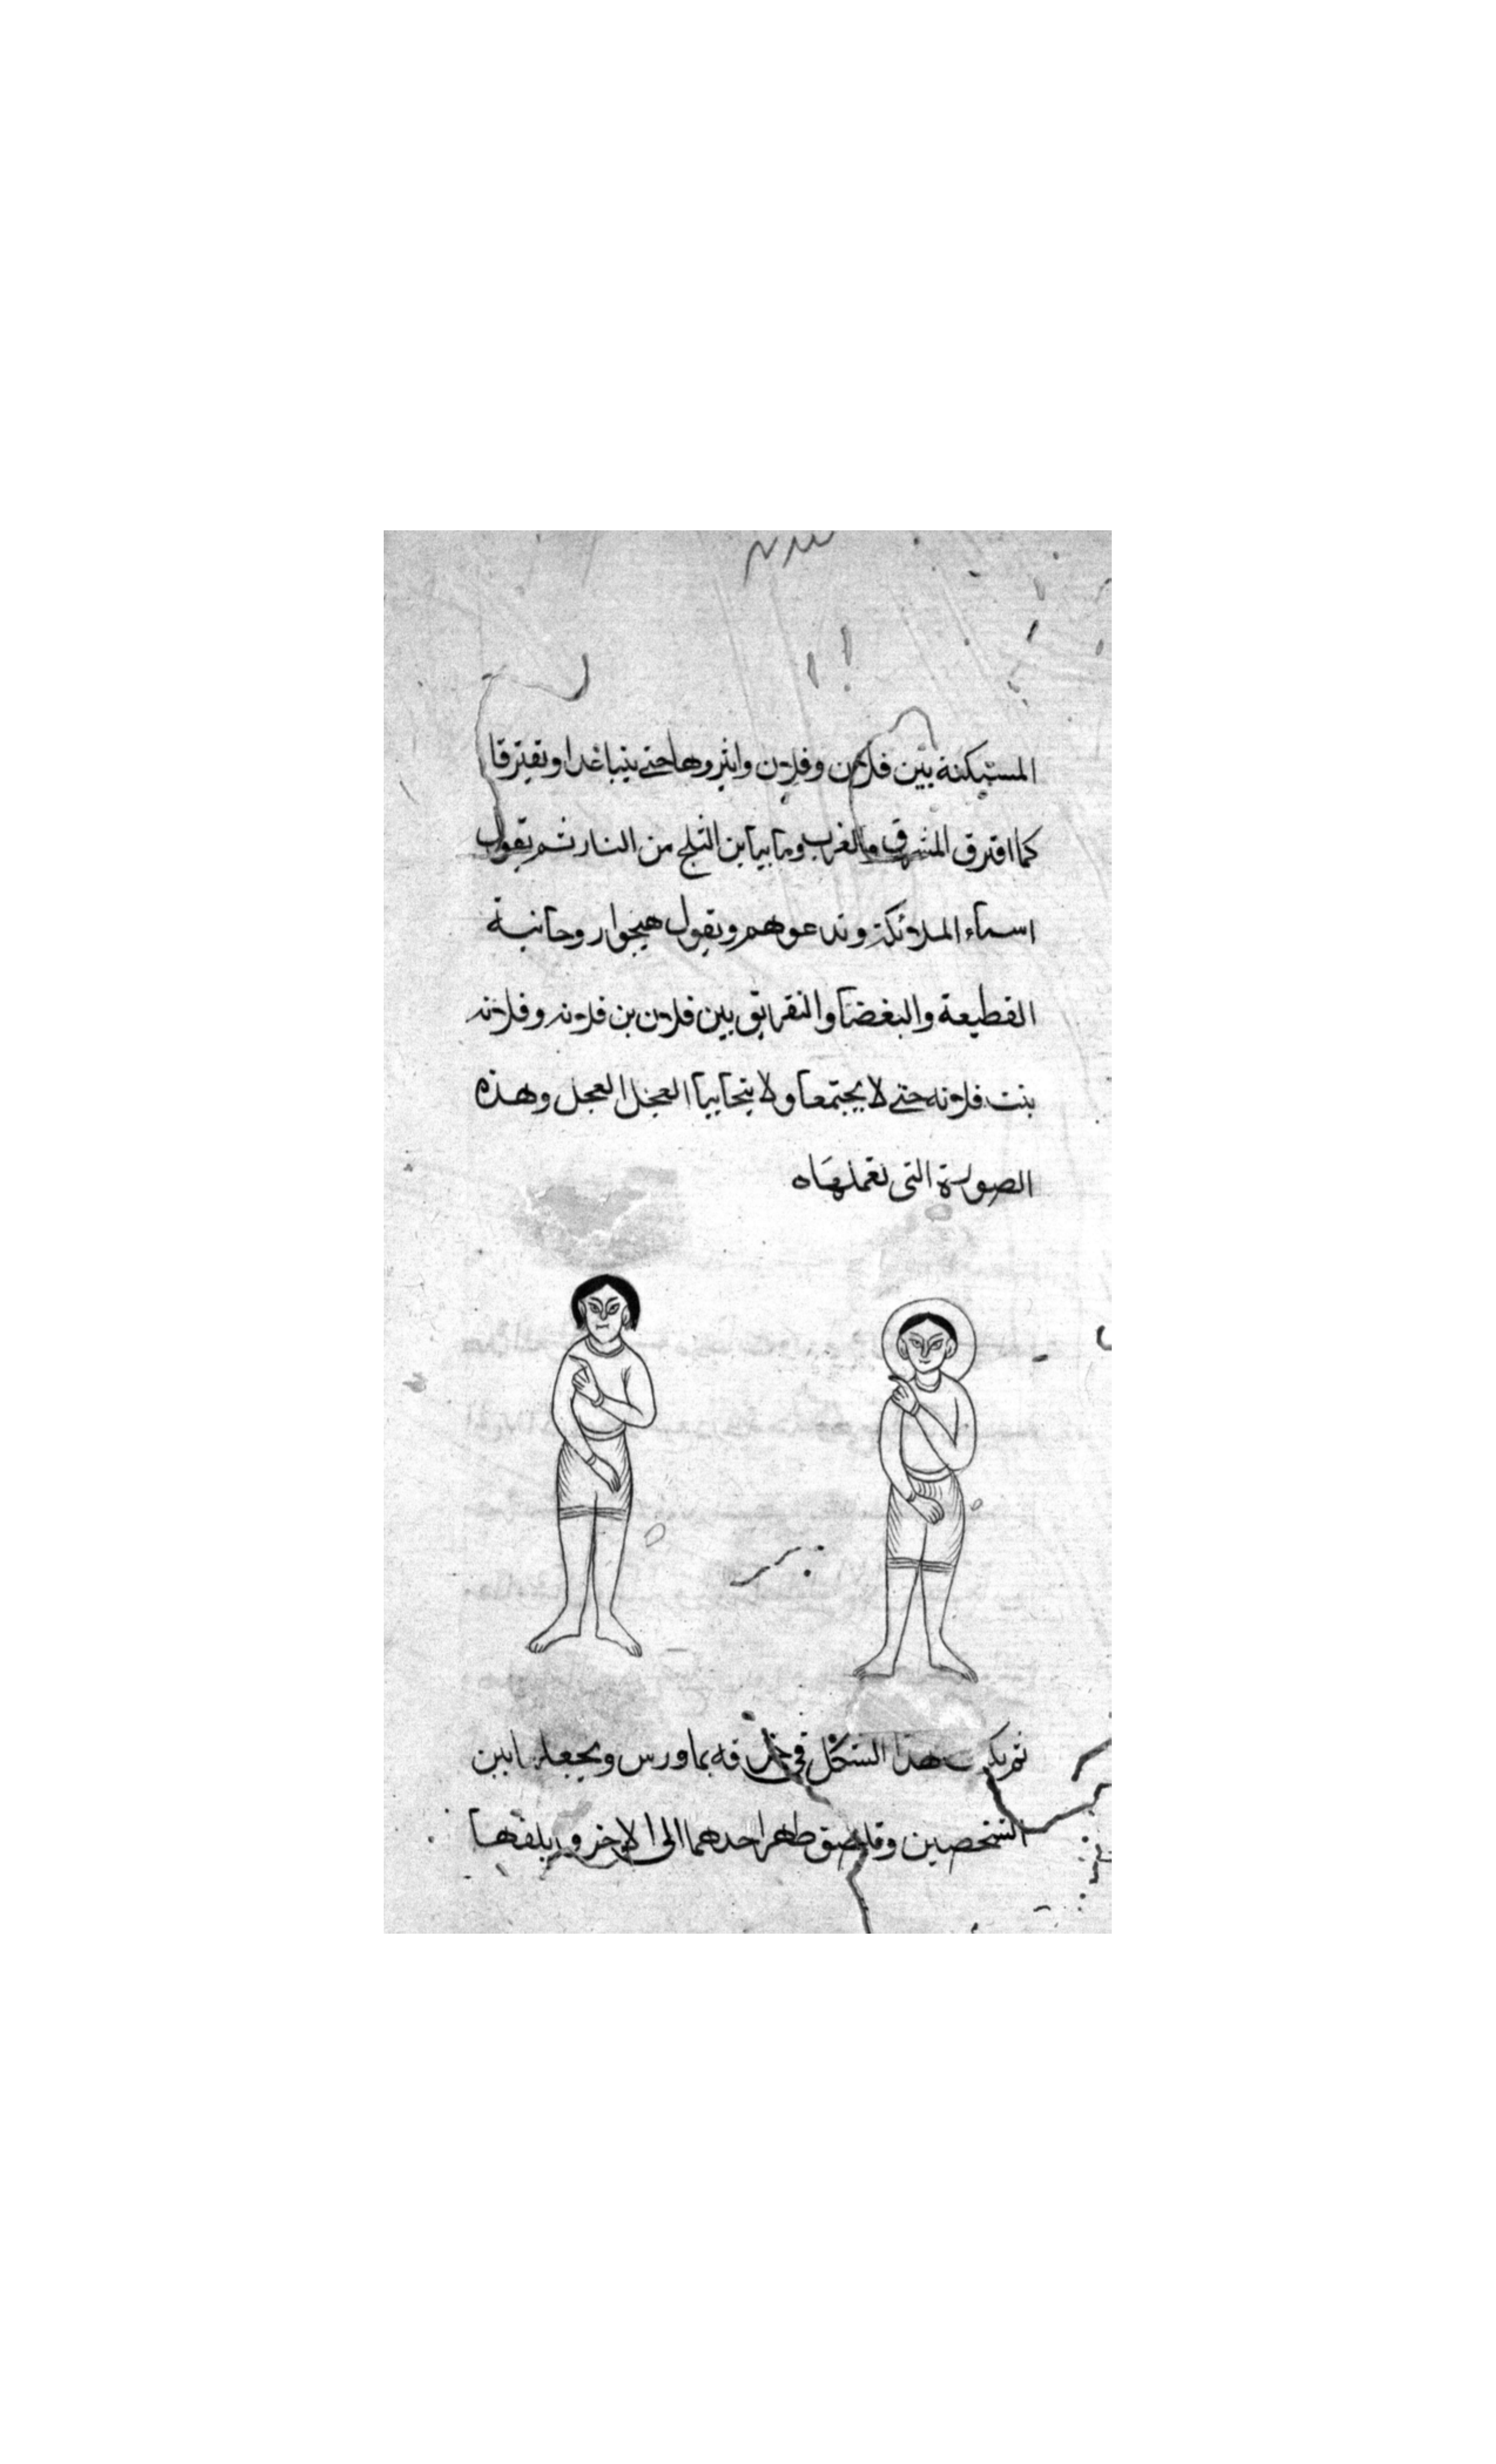 المستكنة بين فلان وفلان واثروها حتى يتباغدا وتفترقا
كما افترق المشرق والغرب وما بيابن الثلج من النار ثم تقول
اسماء الملائكة وتدعوهم وتقول هيجوا روحانية
القطيعة والبغضا والتفريق بين فلان بن فلانه وفلانه
بنت فلانه حتى لا يجتمعا ولا يتحابيا العجل العجل وهذه
الصورة التي تعملها
ثم يكتب هذا الشكل في خرقه بماورس ويجعلها بين
الشخصين وقد لصق ظهر احدهما الى الاخر ويلفها